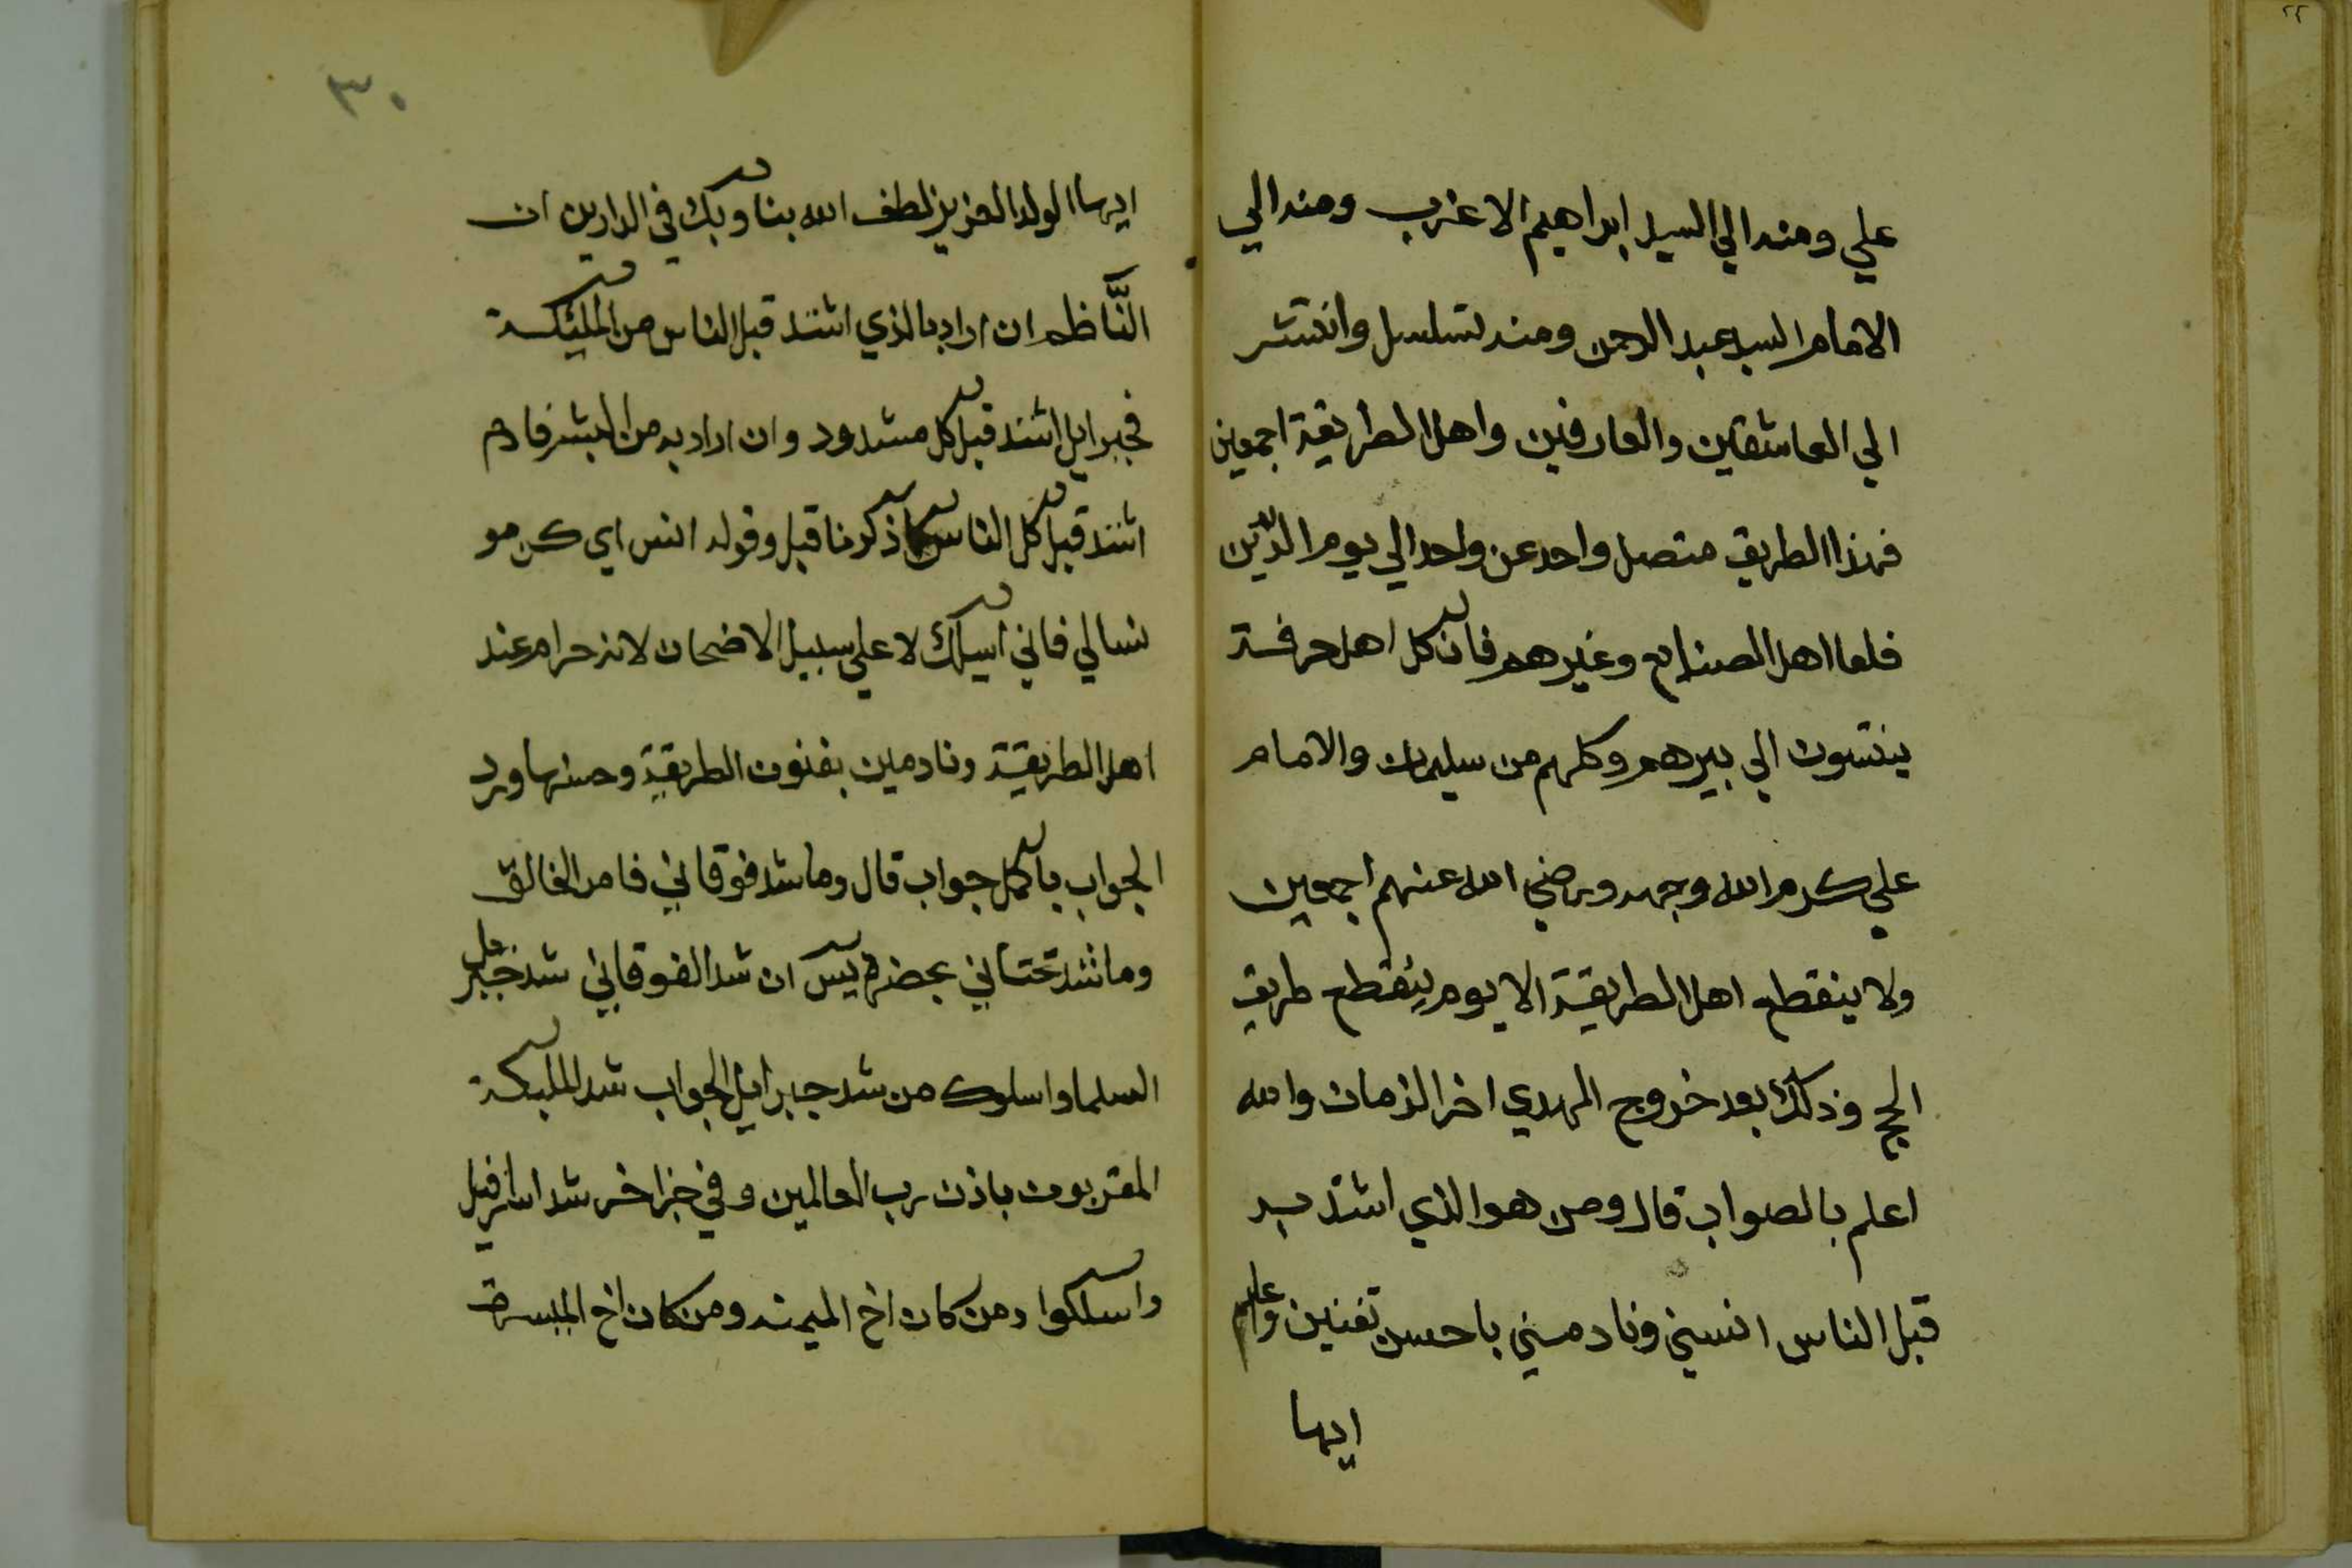 علي ومنه الي السيد ابراهيم الاعزب ومنه الي
الامام السيد عبد الرحمن ومنه تسلسل وانتشر
الي العاشقين والعارفين واهل الطريقة اجمعين
فهذا الطريق متصل واحد عن واحد الي يوم الدّين
فلما اهل الصنايع وغيرهم فان كل اهل حرفة
ينتسون الي بيرهم وكلهم من سليمان والامام
علي كرم الله وجهه ورضي الله عنهم اجمعين
ولا ينقطع اهل الطريقة الا يوم ينقطع طريق
الحج وذلك بعد خروج المهدي اخر الزمان والله
اعلم بالصواب قال ومن هو الذي اشتد به
قبل الناس انسني ونادمني باحسن تفنين واعلم
ايها
٣٠
ايها الولد العزيز لطف الله بنا وبك في الدارين ان
النَّاظم ان اراد بالذي اشتد قبل الناس من المليئكة
فجبرايل اشتد قبل كل مشدود وان اراد به من البشر فادم
اشتد قبل كل الناس كما ذكرنا قبل وقوله انس اي كن مو
نسا لي فاني اسيلك لا علي سبيل الامتحان لانه حرام عند
اهل الطريقة ونادمين بفنون الطريقة وحسنها ورد
الجواب باكمل جواب قال وما شد فوقاني فامر الخالق
وما شد تحتاني بحضرة يس ان شد الفوقاني شد جبريل
العلما واسلوك من شد جبرايل الجواب شد المليكة
المقربون باذن رب العالمين وفي خبر اخر شد اسرافيل
واسلكوا ومن كان اخ الميمنه ومن كان اخ الميسرة